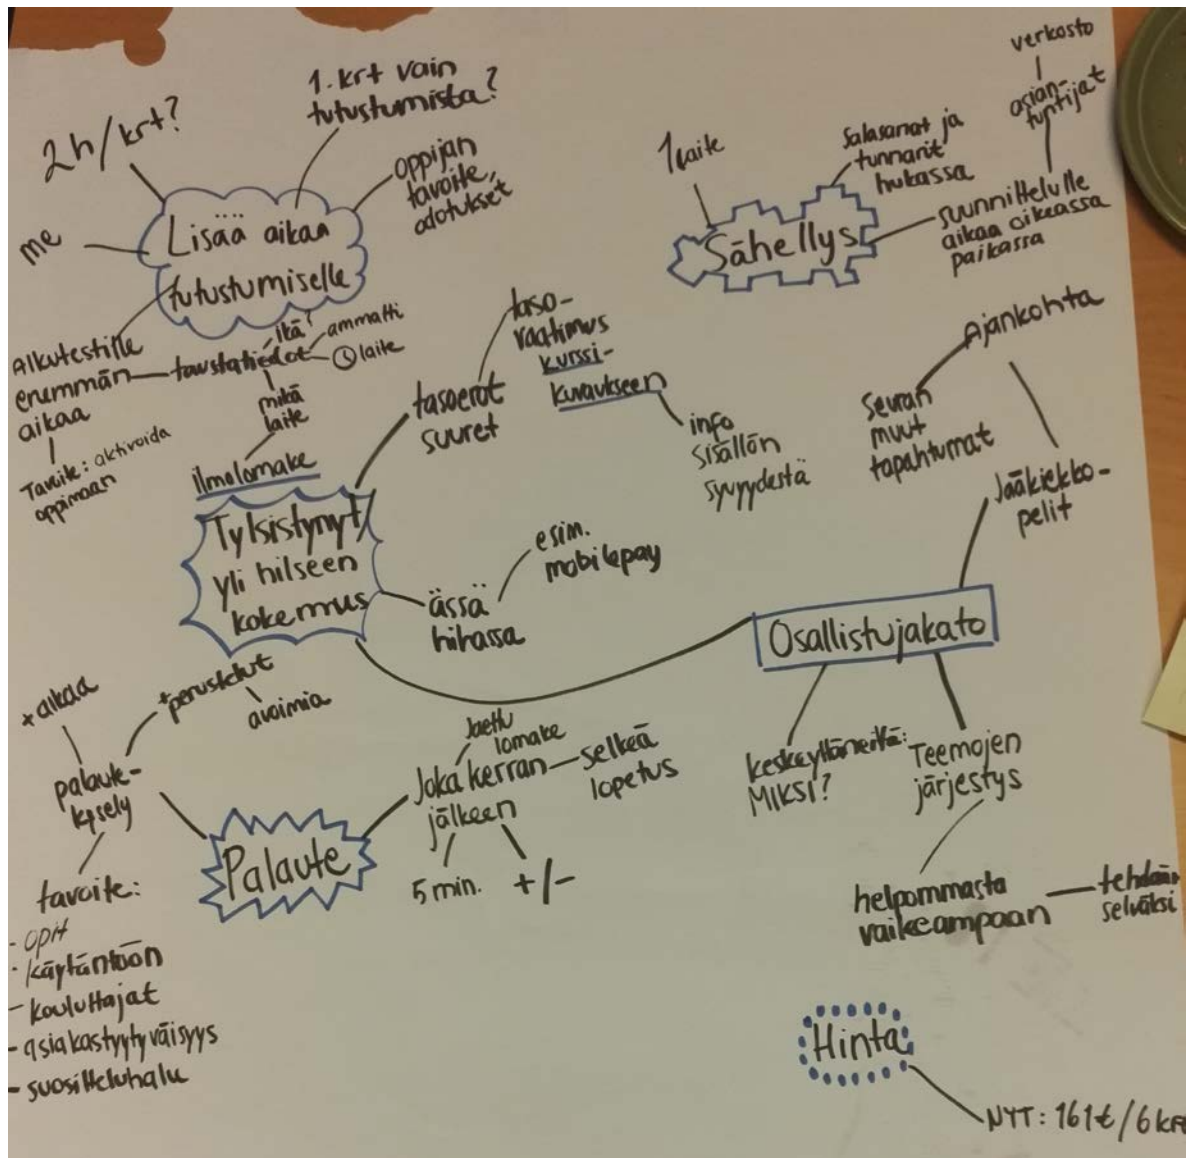 2h/krt?
1. krt vain
tutustumista?
oppijan
tavoite,
odotukset
me
Lisää aikaa
tutustumiselle
Alkutestille
enemmän
aikaa
Tavoite: aktivoida
oppimaan
taustatiedot
ikä?
ammatti
laite
mikä
laite
1 laite
Sähellys
salasanat ja
tunnarit
hukassa
suunnittelulle
aikaa oikeassa
paikassa
asian-
tuntijat
verkosto
ilmolomake
Tylsistynyt/
yli hilseen
kokemus
tasoerot
suuret
taso-
vaatimus
kurssi-
kuvaukseen
info
sisällön
syvyydestä
ässä
hihassa
esim.
mobilepay
Ajankohta
Seuran
muut
tapahtumat
Jääkiekko-
pelit
Osallistujakato
keskeyttäneitä:
MIKSI?
Teemojen
järjestys
helpommasta
vaikeampaan
tehdään
selväksi
+ aikaa
+ perustelut
avoimia
palaute-
kysely
tavoite:
- opit
- käytäntöön
- kouluttajat
- asiakastyytyväisyys
- suositteluhalu
Palaute
Jaettu
lomake
Joka kerran
jälkeen
selkeä
lopetus
5 min.
+/-
Hinta
NYT: 161€/6 krt